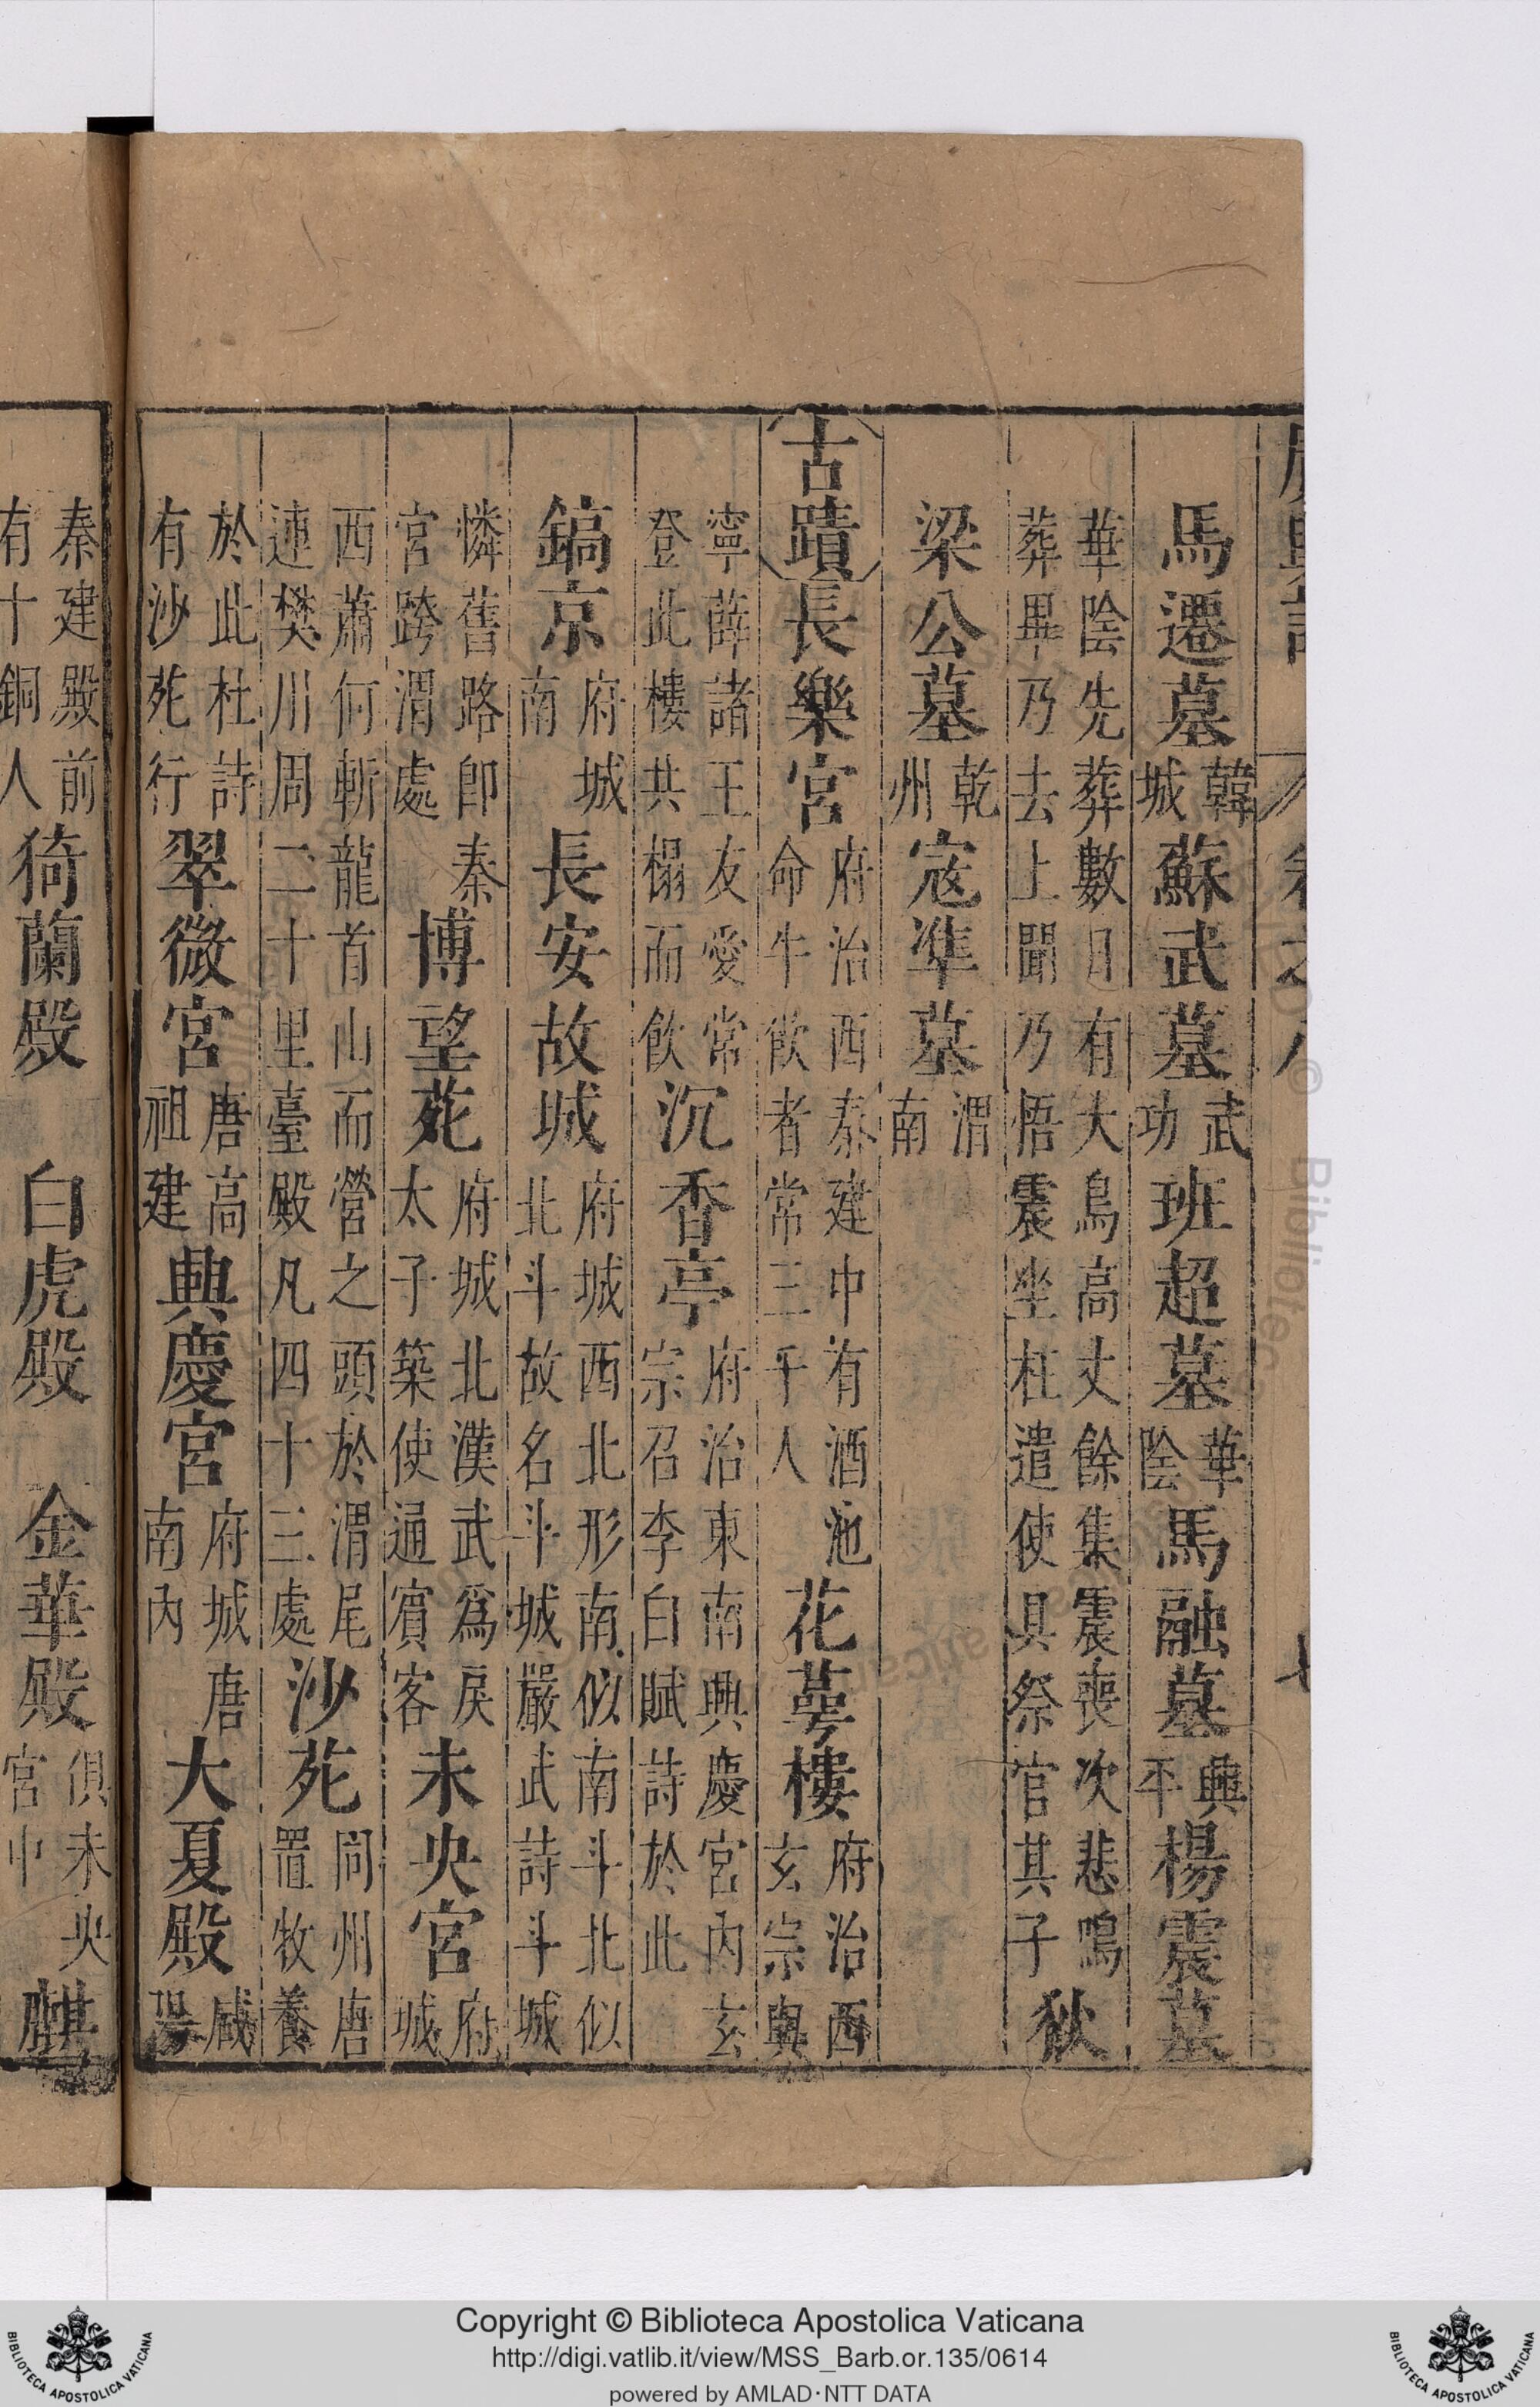 馬遷墓韓城蘇武墓武功班超墓華陰馬融墓興平楊震墓
華陰先葬數日有大鳥高丈餘集震喪次悲鳴葬畢乃去上聞乃悟震坐枉遣使具祭官其子狄
梁公墓乾州寇準墓渭南
古蹟長樂宮府治西秦建中有酒池命牛飲者常三千人花萼樓府治西玄宗與
寧薛諸王友愛常登此樓共榻而飲沉香亭府治東南興慶宮內玄宗召李白賦詩於此
鎬京府城南長安故城府城西北形南似南斗北似北斗故名斗城嚴武詩斗城
憐舊路即秦宮跨渭處博望苑府城北漢武爲戾太子築使通賓客未央宮府城
西蕭何斬龍首山而營之頭於渭尾連樊川周二十里臺殿凡四十三處沙苑同州唐置牧養
於此杜詩有沙苑行翠微宮唐高祖建興慶宮府城南內唐大夏殿咸陽
秦建殿前有十銅人猗蘭殿 白虎殿 金華殿俱未央宮中麒
Copyright © Biblioteca Apostolica Vaticana
http://digi.vatlib.it/view/MSS_Barb.or.135/0614
powered by AMLAD·NTT DATA
BIBLIOTECA APOSTOLICA VATICANA
BIBLIOTECA APOSTOLICA VATICANA